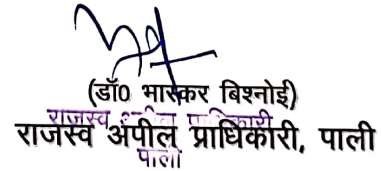 (डॉ0 भास्कर बिश्नोई)
राजस्व अपील प्राधिकारी
राजस्व अंपील प्राधिकारी, पाली
पाली